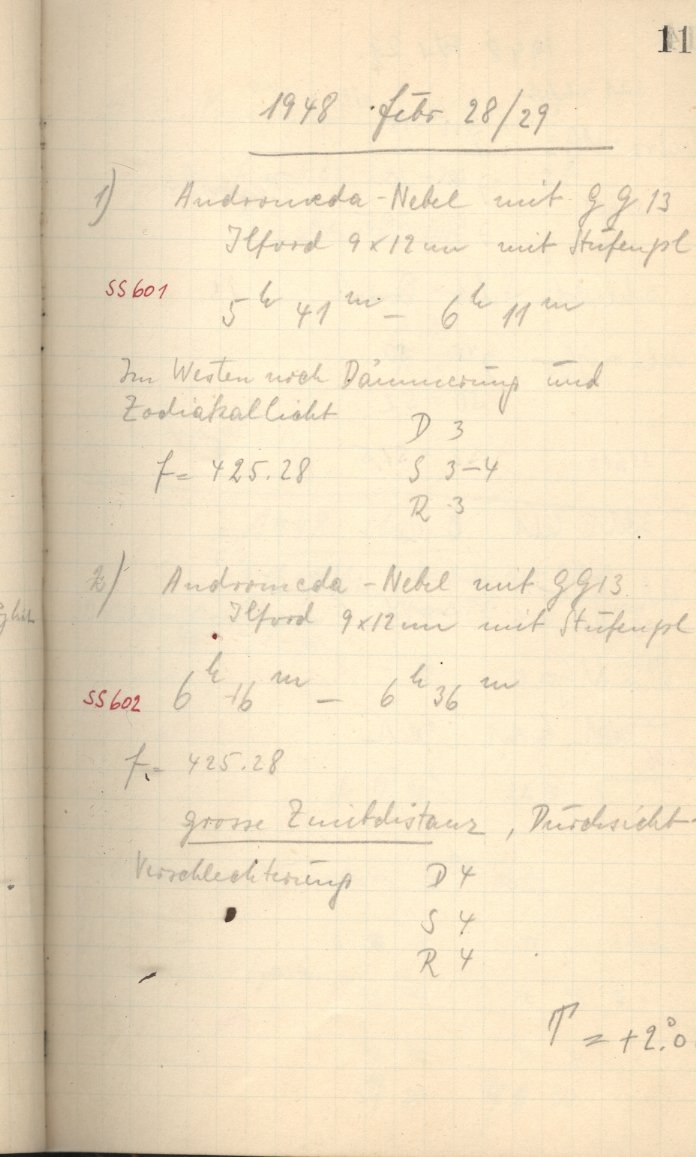 11
1948 Febr 28/29
1) Andromeda-Nebel mit GG13
Ilford 9x12 mit Stufenpl
SS601
5h 41m - 6h 11m
Im Westen noch Dämmerung und
Zodiakallicht
D 3
f = 425.28 S 3-4
R 3
2) Andromeda-Nebel mit GG13
Ilford 9x12 mit Stufenpl
SS602 6h 16m - 6h 36m
f = 425.28
grosse Zenitdistanz, Durchsicht-
Verschlechterung D 4
S 4
R 4
T = +2.°0